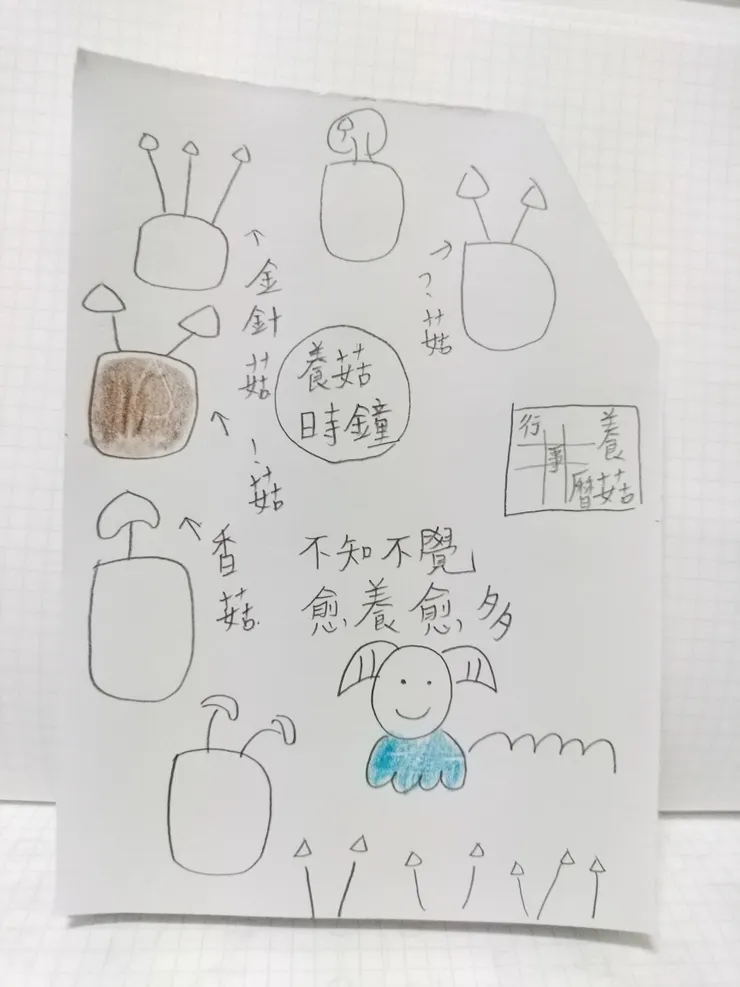 金針菇
？菇
養菇
時鐘
！菇
行事曆
養菇
香菇
不知不覺
愈養愈多